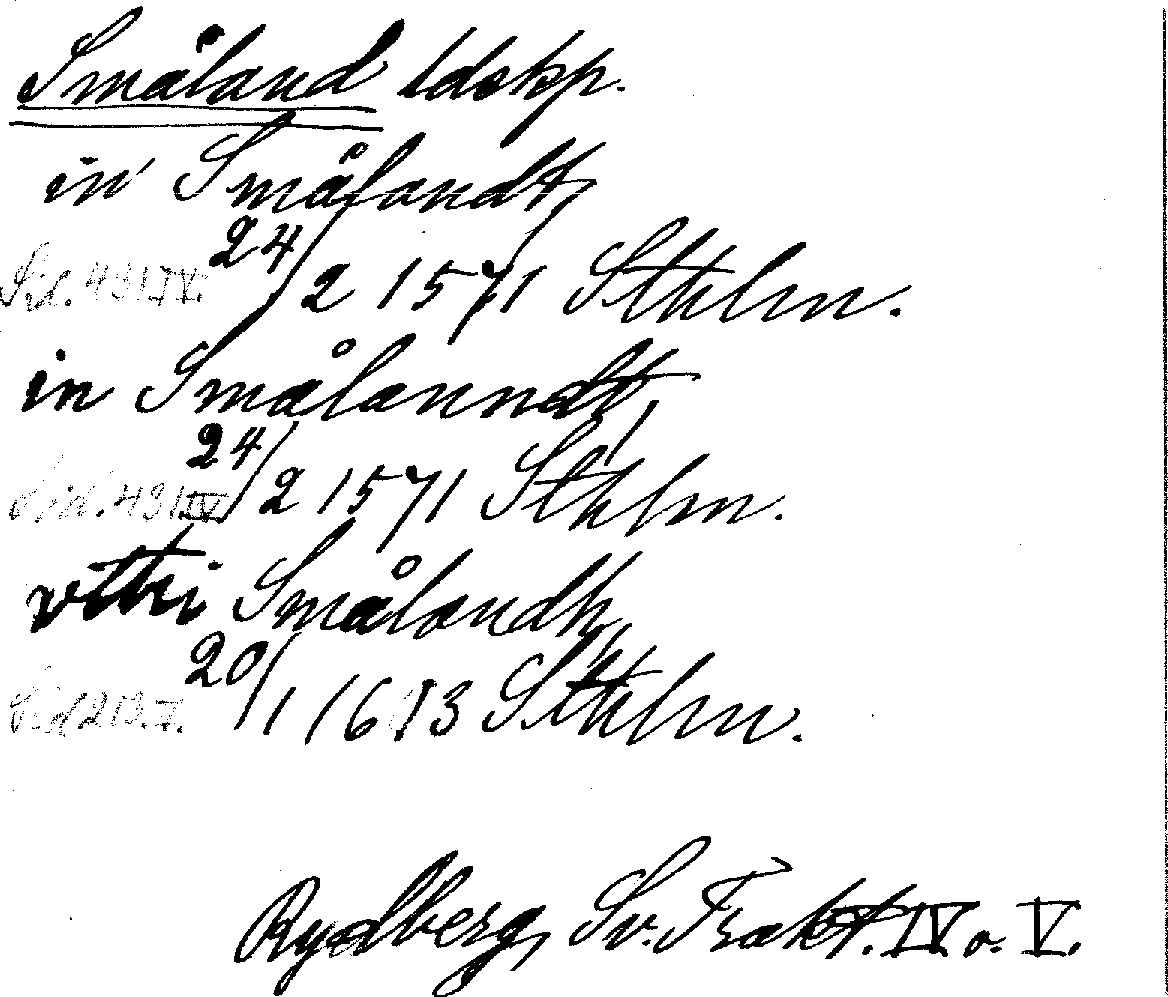 Småland ldskp.
in Smålandt,
Sid. 431 IV. 24/2 1571 Sthlm.
in Smålanndt,
Sid. 431 IV. 24/2 1571 Sthlm.
vthi Smålandh,
Sid 213. V. 20/1 1613 Sthlm.
Rydberg, Sv. Trakt. IV o. V.